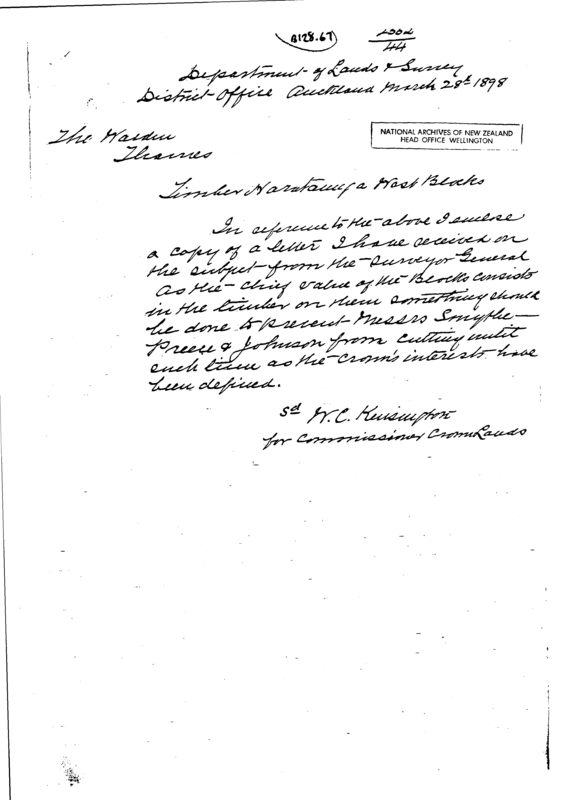 B128.67
2002
44
Department of Lands & Survey
District Office Auckland March 28th 1898
The Warden
Thames
NATIONAL ARCHIVES OF NEW ZEALAND
HEAD OFFICE WELLINGTON
Timber Harataunga West Blocks
In reference to the above I enclose
a copy of a letter I have received on
the subject from the Surveyor General
As the chief value of the Blocks consists
in the timber on them something should
be done to prevent Messrs Smythe
Preece & Johnson from cutting until
such time as the Crown's interests have
been defined.
Sd W.C. Kensington
for Commissioner Crown Lands